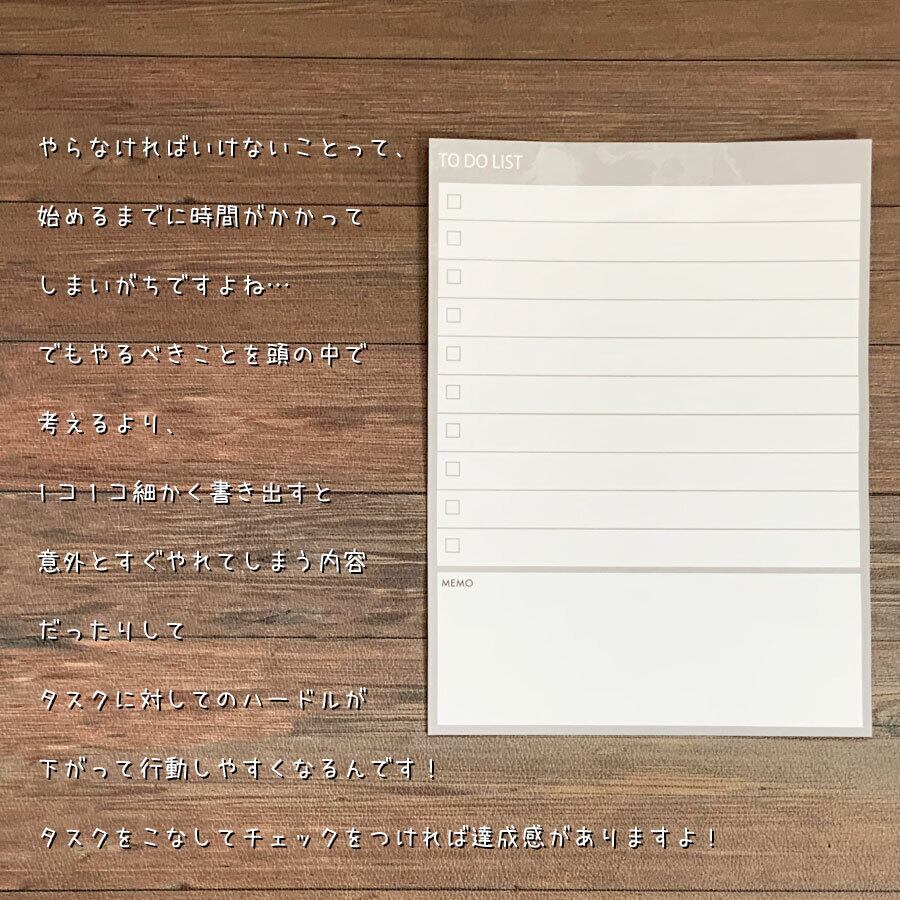 やらなければいけないことって、
始めるまでに時間がかかって
しまいがちですよね…
でもやるべきことを頭の中で
考えるより、
1コ1コ細かく書き出すと
意外とすぐやれてしまう内容
だったりして
タスクに対してのハードルが
下がって行動しやすくなるんです！
タスクをこなしてチェックをつければ達成感がありますよ！
TO DO LIST
MEMO